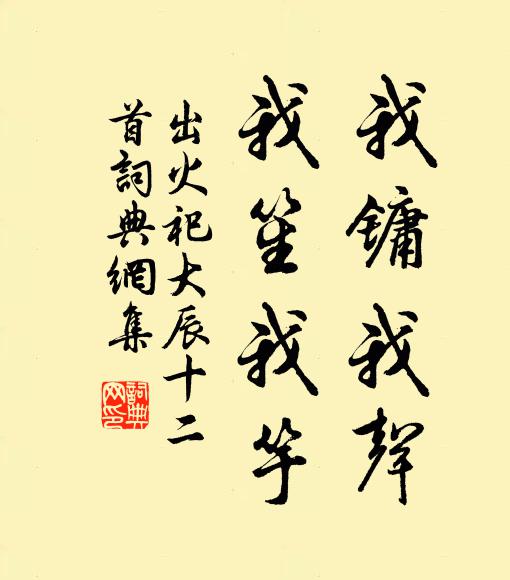 我鏞我聲
我笙我竽
出火祀大辰十二
首詞典網集
詞典网印